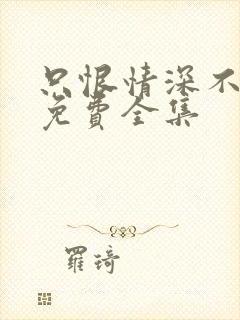 只恨情深不
免費全集
羅琦